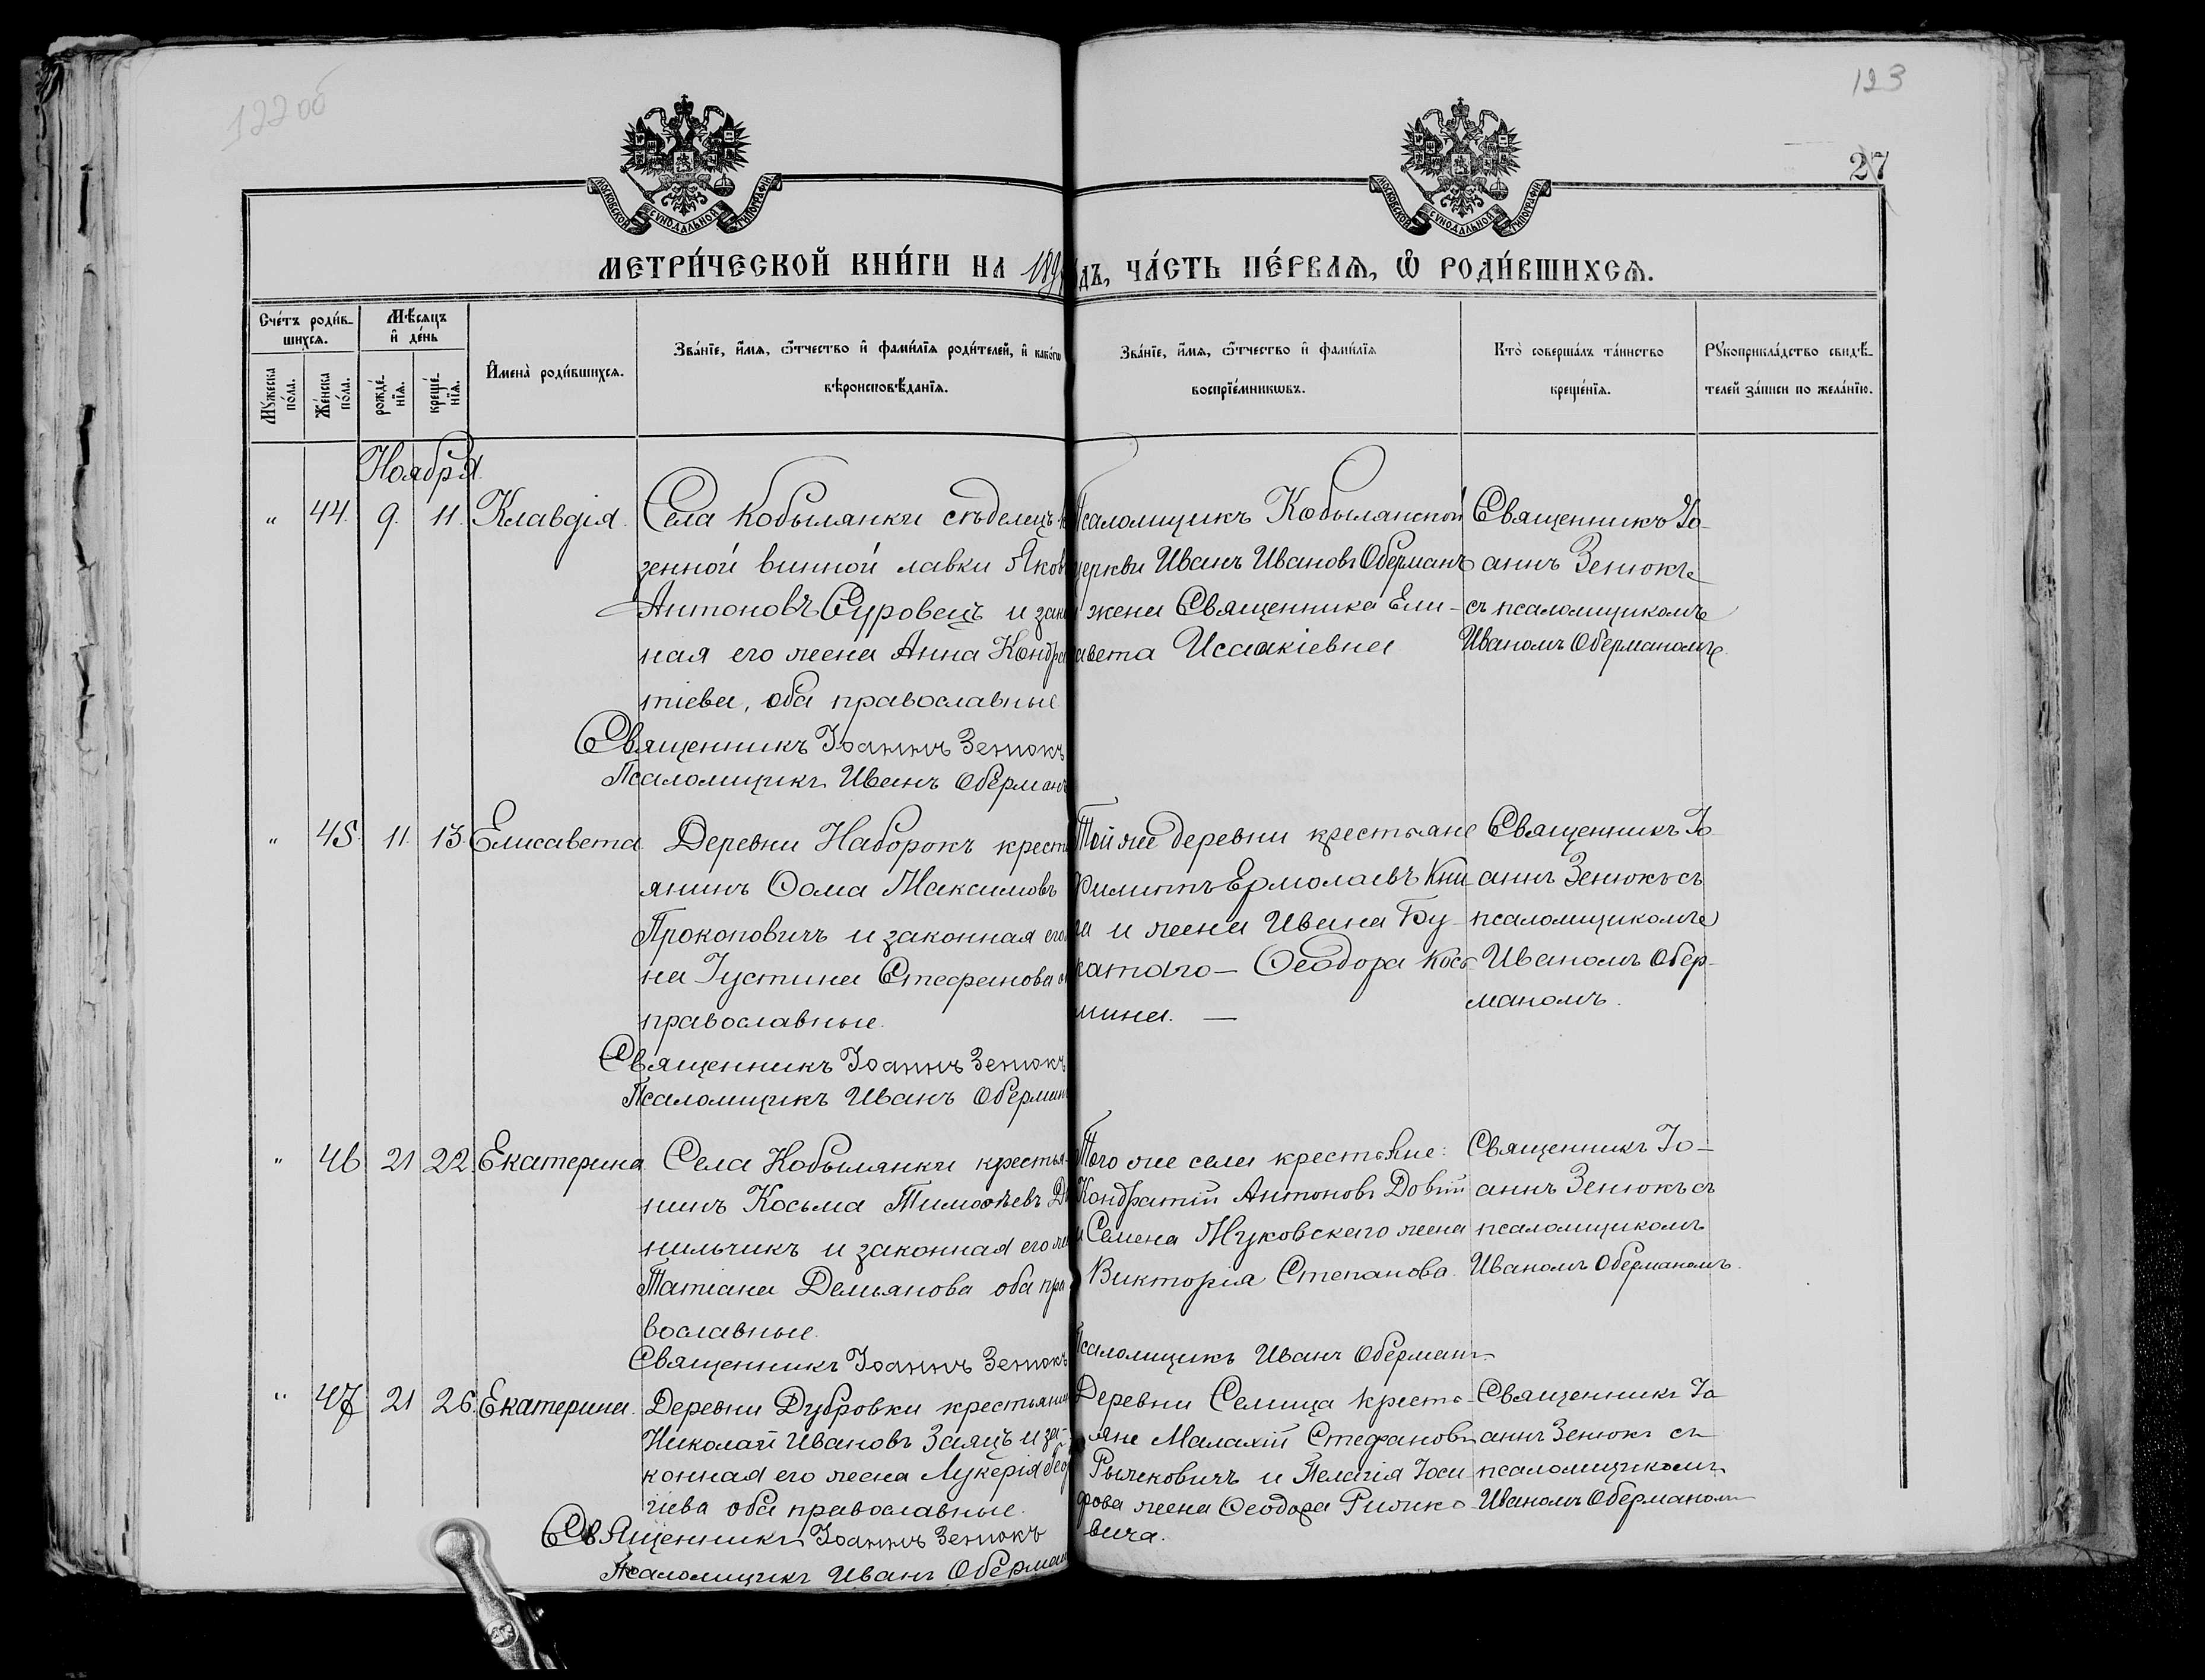 122 об
123
27
МОСКОВСКОЙ СѴНОДАЛЬНОЙ ТИПОГРАФІИ
МОСКОВСКОЙ СѴНОДАЛЬНОЙ ТИПОГРАФІИ
МЕТРИ́ЧЕСКОЙ КНИ́ГИ НА 189 дъ, ЧА́СТЬ ПЕ́РВАѦ, Ѽ РОДИ́ВШИХСѦ.
Сче́тъ роди́в-
шихсѧ.
Мꙋ́жеска
по́ла.
Же́нска
по́ла.
Мѣ́сѧцъ
и҆ де́нь
рожде́-
нїѧ.
креще́-
нїѧ.
И҆мена̀ роди́вшихсѧ.
Зва́нїе, и҆́мѧ, ѻ҆́тчество и҆ фами́лїѧ роди́телей, и҆ како́гѡ
вѣроисповѣ́данїѧ.
Зва́нїе, и҆́мѧ, ѻ҆́тчество и҆ фами́лїѧ
воспрїе́мникѡвъ.
Кто̀ соверша́лъ та́инство
креще́нїѧ.
Рꙋкоприкла́дство свидѣ́-
телей за́писи по жела́нїю.
Ноября
" 44. 9. 11. Клавдія.
Села Кобылянки сѣделецъ к
зенной винной лавки Яков
Антоновъ Суровецъ и зако
ная его жена Анна Кондра
тіева, оба православные
Священникъ Іоаннъ Зенюкъ
Псаломщикъ Иванъ Оберманъ
Псаломщикъ Кобылянской
церкви Иванъ Ивановъ Оберманъ
и жена Священника Ели-
авета Исаакіевна
Священникъ Іо-
аннъ Зенюкъ
съ псаломщикомъ
Иваномъ Оберманомъ.
" 45. 11. 13. Елисавета
Деревни Наборокъ кресть
янинъ Ѳома Максимовъ
Прокоповичъ и законная его
на Іустина Стефанова о
православные.
Священникъ Іоаннъ Зенюкъ
Псаломщикъ Иванъ Оберман
Той же деревни крестьяне
Филиппъ Ермолаевъ Кни
га и жена Ивана Бу-
катого — Ѳеодора Кось-
мина. —
Священникъ Іо
аннъ Зенюкъ съ
псаломщикомъ
Иваномъ Обер-
маномъ.
" 46 21 22. Екатерина
Села Кобылянки крестья-
нинъ Косьма Тимоѳѣевъ Да
нильчикъ и законная его же
Татіана Демьянова оба пра
вославные.
Священникъ Іоаннъ Зенюкъ
Того же села крестьяне:
Кондратій Антоновъ Довгій
и Семена Жуковскаго жена
Викторія Степанова.
Псаломщикъ Иванъ Оберманъ
Священникъ Іо-
аннъ Зенюкъ съ
псаломщикомъ
Иваномъ Оберманомъ.
" 47 21 26. Екатерина.
Деревни Дубровки крестьянин
Николай Ивановъ Заяцъ и за-
конная его жена Лукерія Геор
гіева оба православные.
Священникъ Іоаннъ Зенюкъ
Псаломщикъ Иванъ Оберман
Деревни Селища кресть-
яне Малахій Стефановъ
Рычковичъ и Пелагія Іоси
фова жена Ѳеодора Рычко-
вича.
Священникъ Іо
аннъ Зенюкъ съ
псаломщикомъ
Иваномъ Оберманомъ